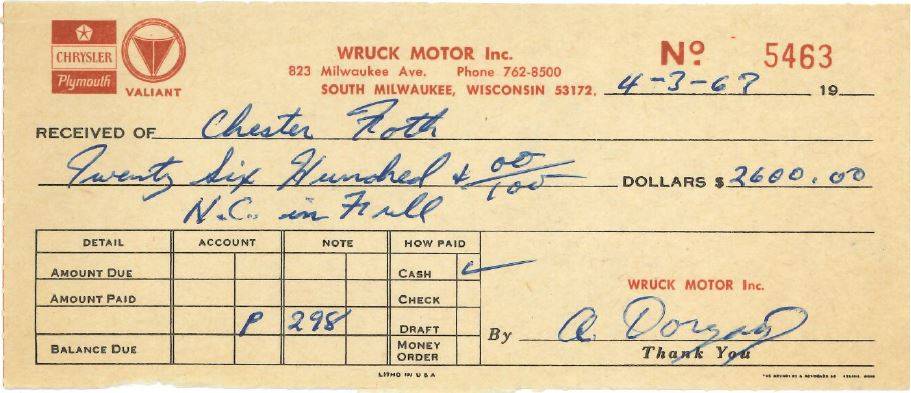 CHRYSLER
Plymouth
VALIANT
WRUCK MOTOR Inc.
823 Milwaukee Ave. Phone 762-8500
SOUTH MILWAUKEE, WISCONSIN 53172,
Nº 5463
4-3-67 19
RECEIVED OF Chester Roth
Twenty Six Hundred & 00/100 DOLLARS $ 2600.00
N.C. in Full
DETAIL ACCOUNT NOTE HOW PAID
AMOUNT DUE CASH ✓
AMOUNT PAID CHECK
P 298 DRAFT
BALANCE DUE MONEY ORDER
WRUCK MOTOR Inc.
By A. Dorgay
Thank You
LITHO IN U S A